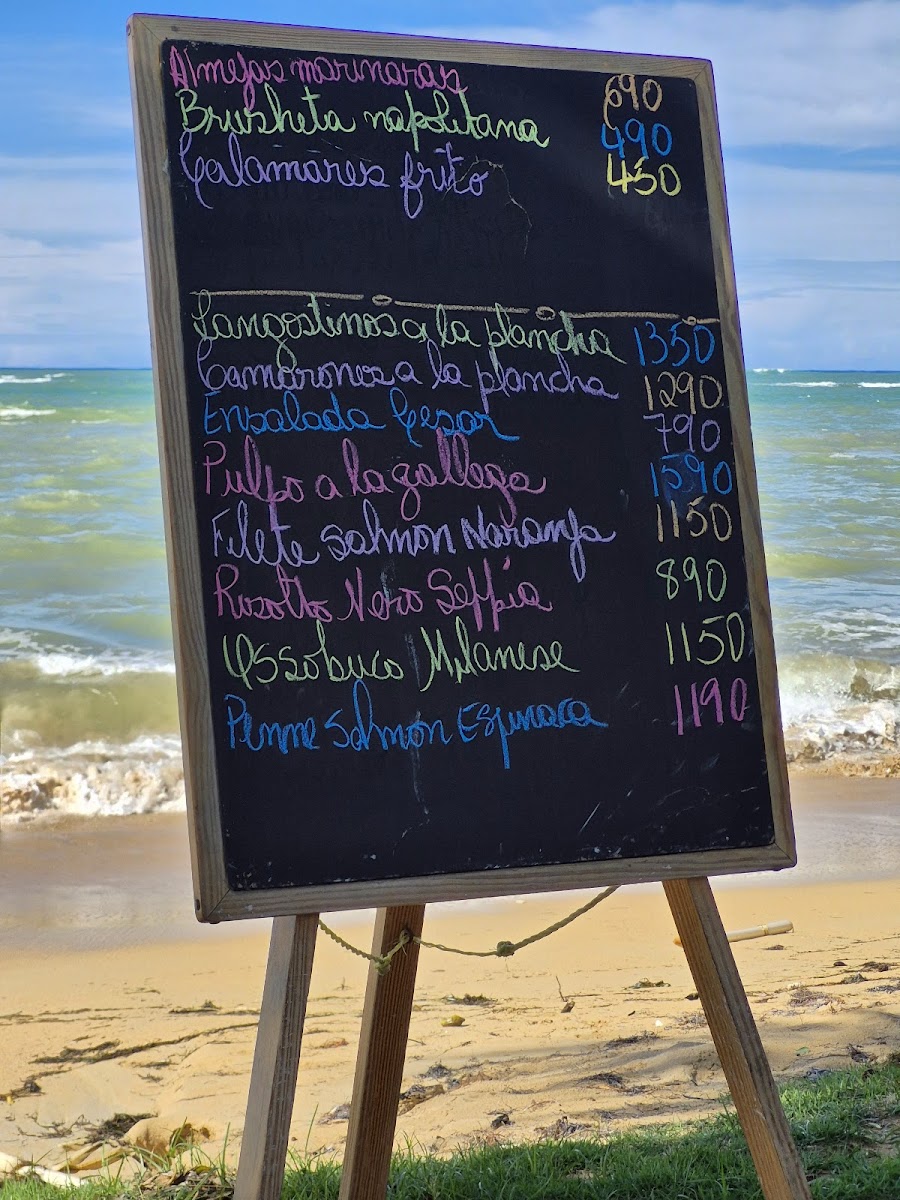 Almejas marinaras 690
Brusheta napolitana 490
Calamares frito 450
Langostinos a la plancha 1350
Camarones a la plancha 1290
Ensalada Cesar 790
Pulpo a la gallega 1590
Filete salmon Naranja 1150
Rosotto Nero Seppia 890
Ossobuco Milanese 1150
Penne Salmon Espinaca 1190